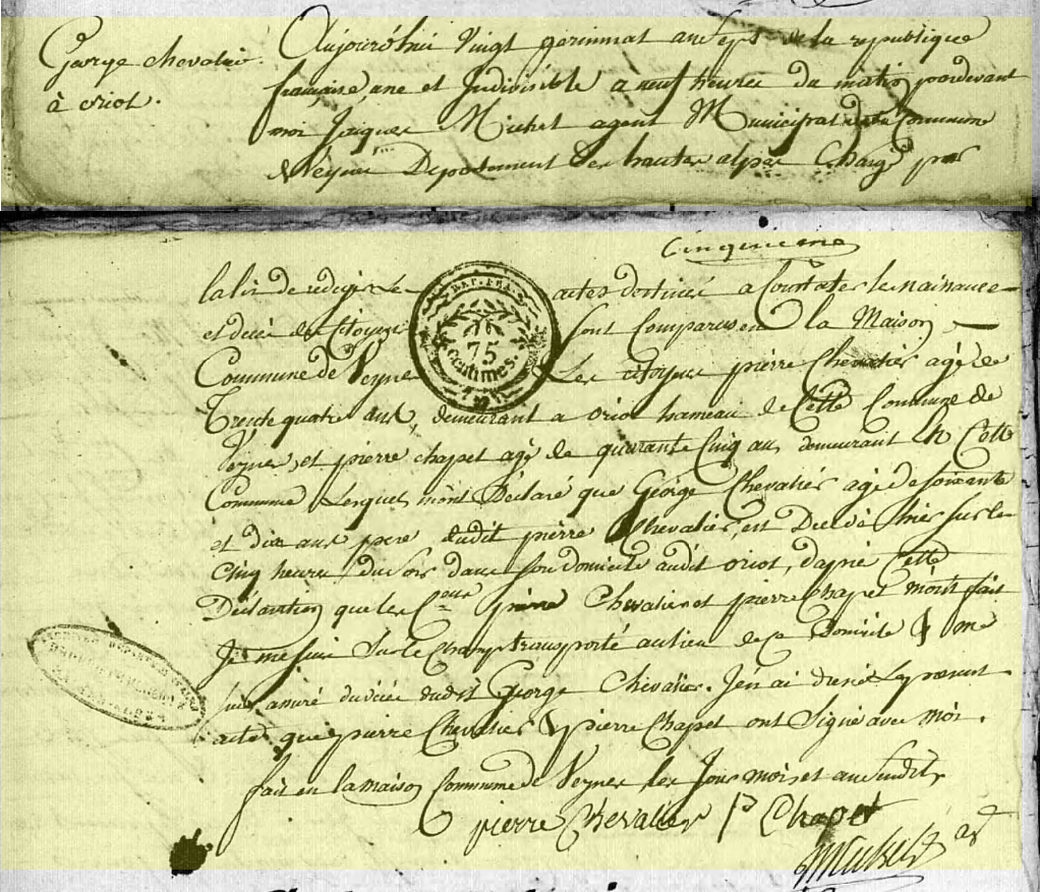 George chevalier
à oriol.
Aujourdhui Vingt germinal an sept de la republique
française une et Indivisible a neuf heures du matin pardevant
moi Jacques Michel agent Municipal de la Commune
de Veynes Departement des hautes alpes Chargé par
Cinquieme
la loi de rediger les actes destinés a Constater les naissances
et decés des Citoyens sont Comparus en la Maison
Commune de Veynes Les citoyens pierre Chevalier agé de
Trente quatre ans, demeurant a oriol hameau de Cette Commune de
Veynes, et pierre chapet agé de quarante Cinq ans demeurant en Cette
Commune Lesquels m'ont Déclaré que George Chevalier agé de soixante
et dix ans pere dudit pierre Chevalier, est Decedé hier sur les
Cinq heures du soir dans son domicile audit oriol, d'aprés Cette
Déclaration que les C.ens pierre Chevalier et pierre Chapet m'ont fait
Je me suis sur le Champ transporté au lieu de ce Domicile & me
suis assuré du décés dudit George Chevalier. J'en ai dressé le present
acte que pierre Chevalier & pierre Chapet ont Signé avec moi.
fait en la maison Commune de Veynes les Jour mois et an Susdits
pierre Chevalier P Chapet
Michel
REP. FRA.
75
centimes.